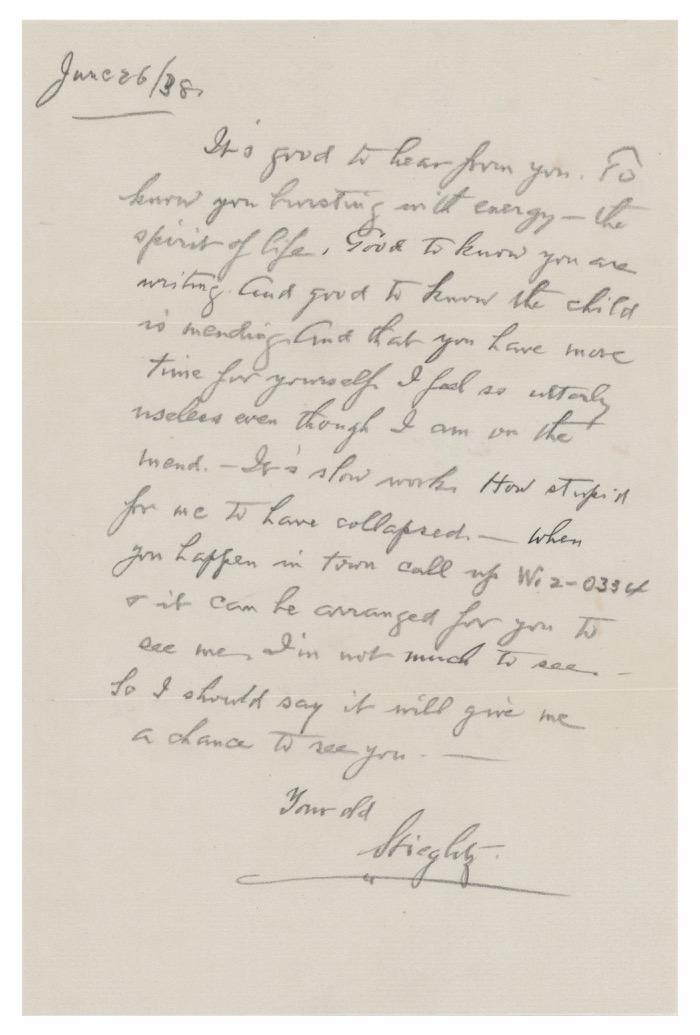 June 26/38.
It's good to hear from you. To
know you bursting with energy — the
spirit of life. Good to know you are
writing. And good to know the child
is mending. And that you have more
time for yourself. I feel so utterly
useless even though I am on the
mend. — It's slow work. How stupid
for me to have collapsed. — When
you happen in town call up Wi 2-0334
& it can be arranged for you to
see me. I'm not much to see. —
So I should say it will give me
a chance to see you. —
Your old
Stieglitz.